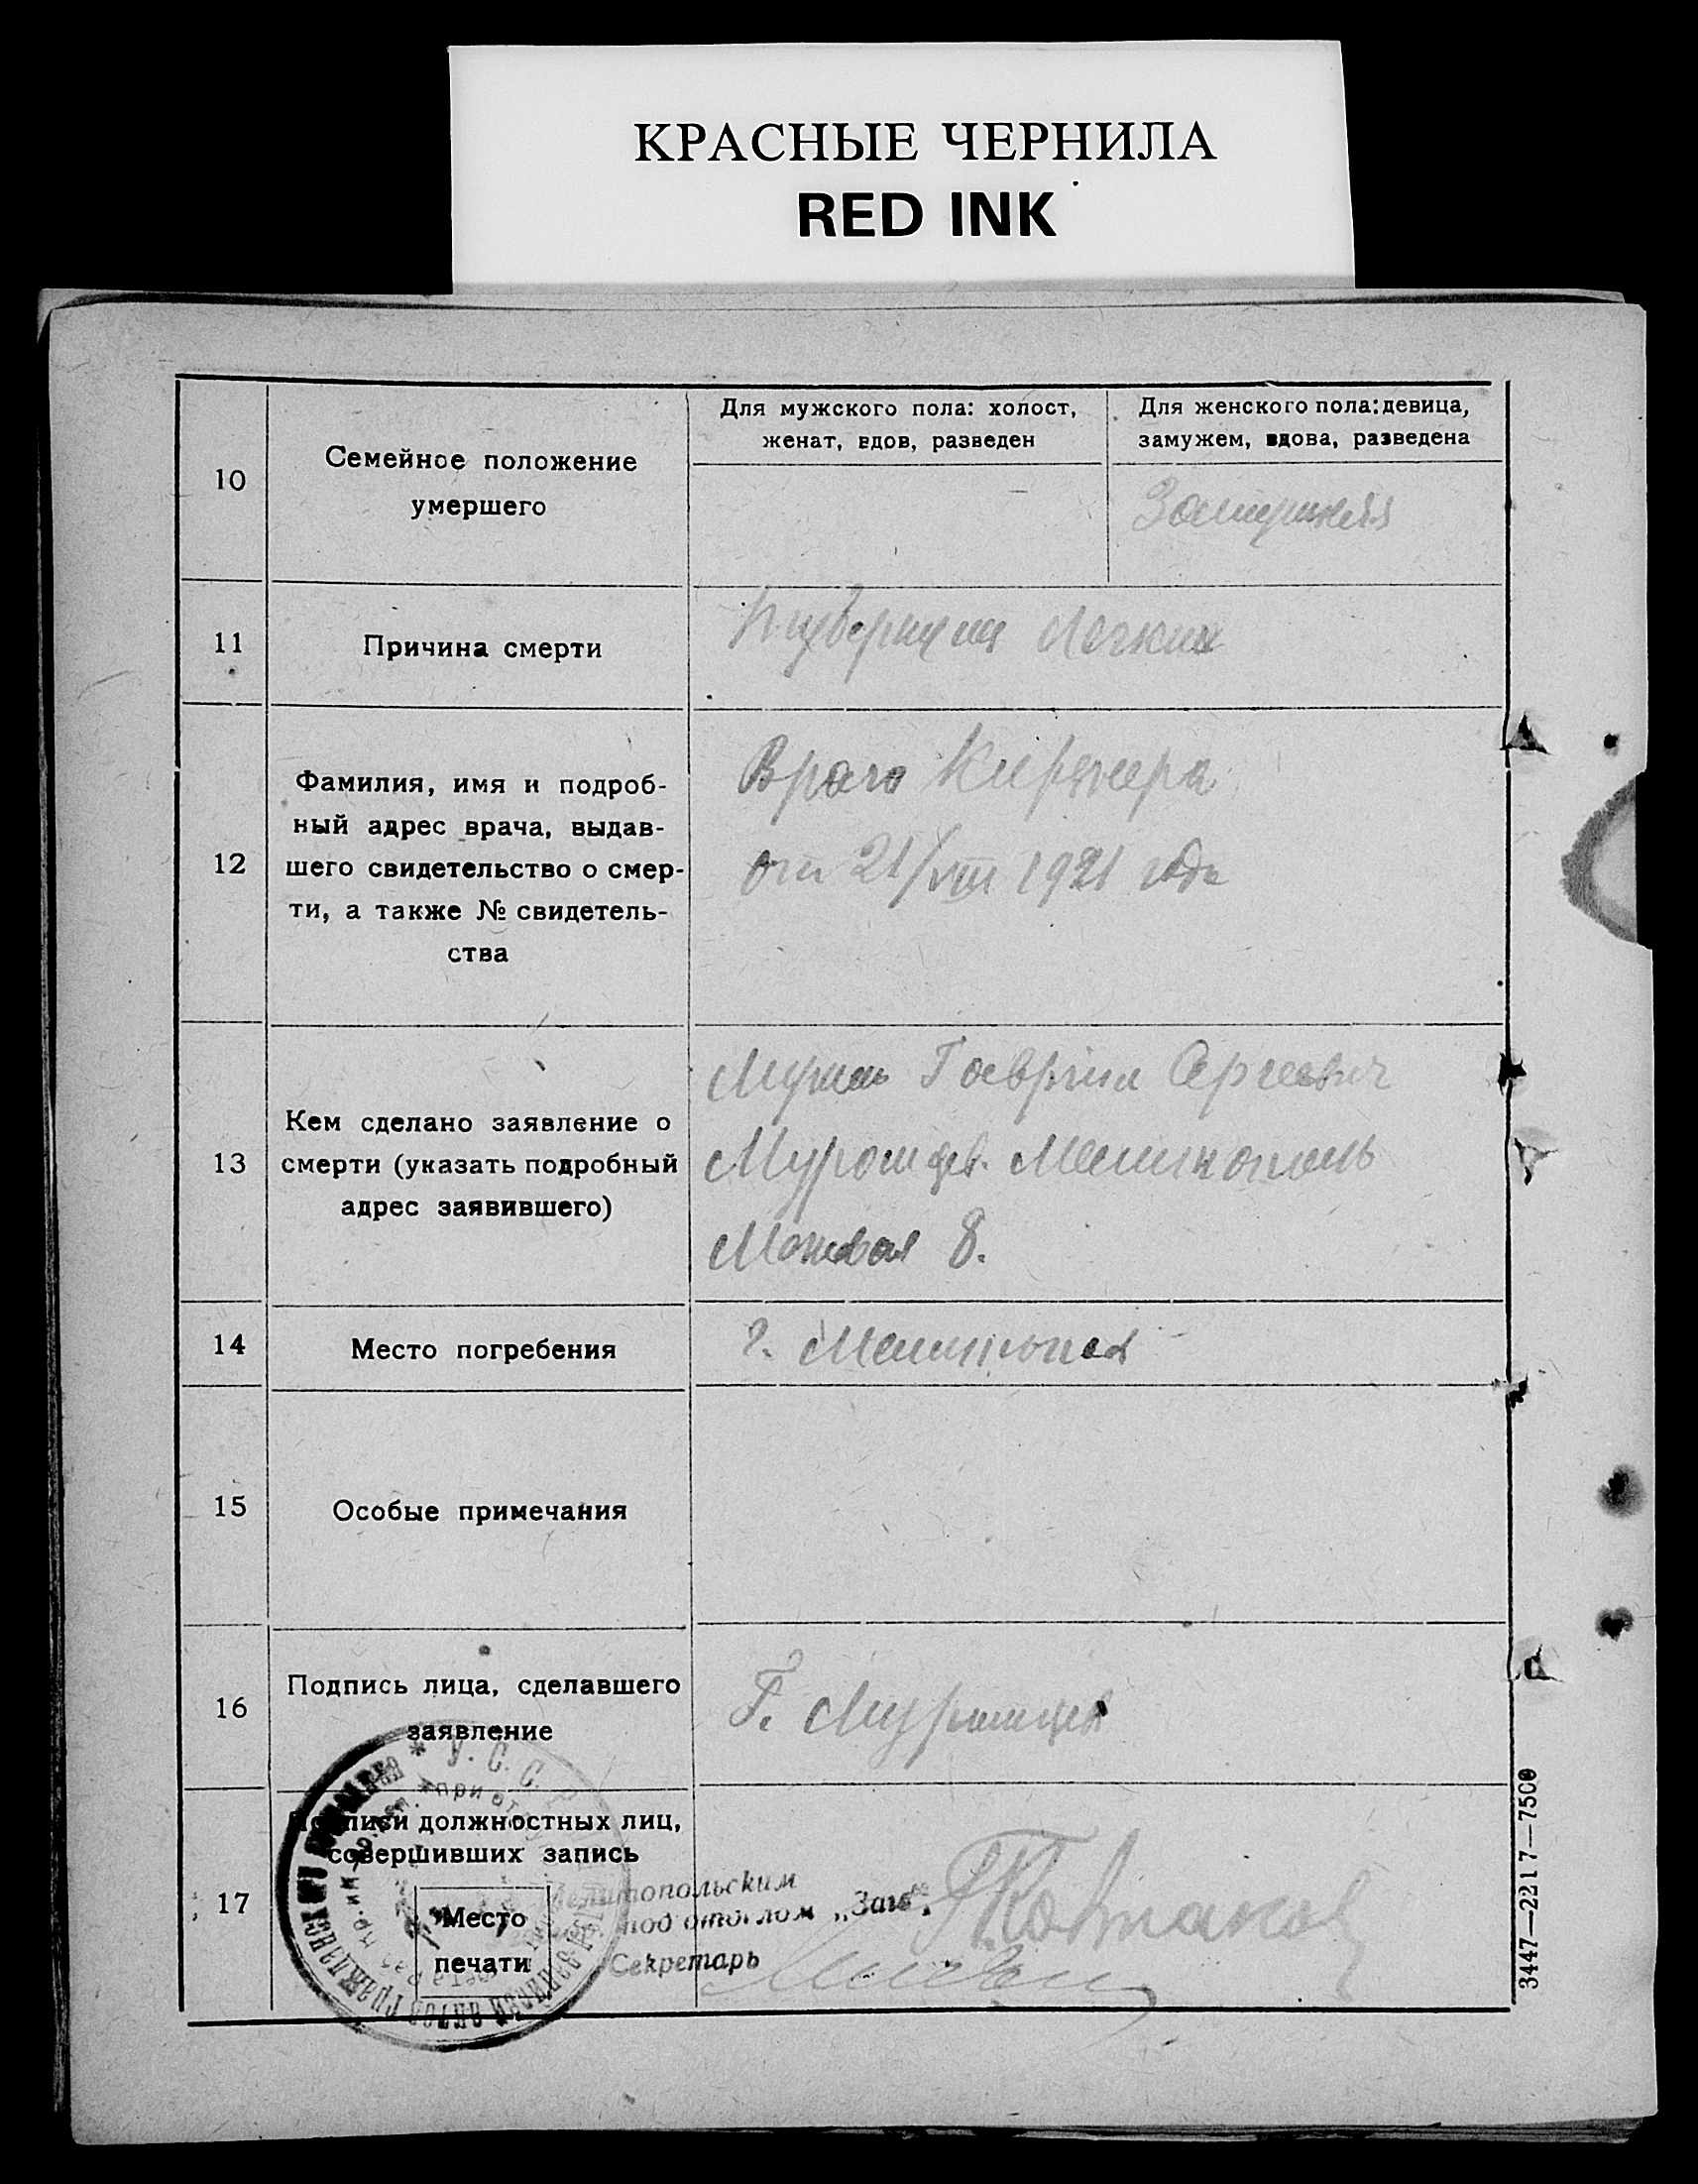 КРАСНЫЕ ЧЕРНИЛА
RED INK
10
Семейное положение
умершего
Для мужского пола: холост,
женат, вдов, разведен
Для женского пола: девица,
замужем, вдова, разведена
Замужняя
11
Причина смерти
легких
12
Фамилия, имя и подроб-
ный адрес врача, выдав-
шего свидетельство о смер-
ти, а также № свидетель-
ства
Врача
от 21/VIII 1921 года
13
Кем сделано заявление о
смерти (указать подробный
адрес заявившего)
Мужем Гавриил Сергеевич
Муромцев. Мелитополь
8.
14
Место погребения
г. Мелитополя
15
Особые примечания
16
Подпись лица, сделавшего
заявление
Г. Муромцев
17
Подписи должностных лиц,
совершивших запись
Место
печати
Мелитопольским
под'отделом „Загс“
Секретарь
У. С. С. Р.
3447—2217—7500